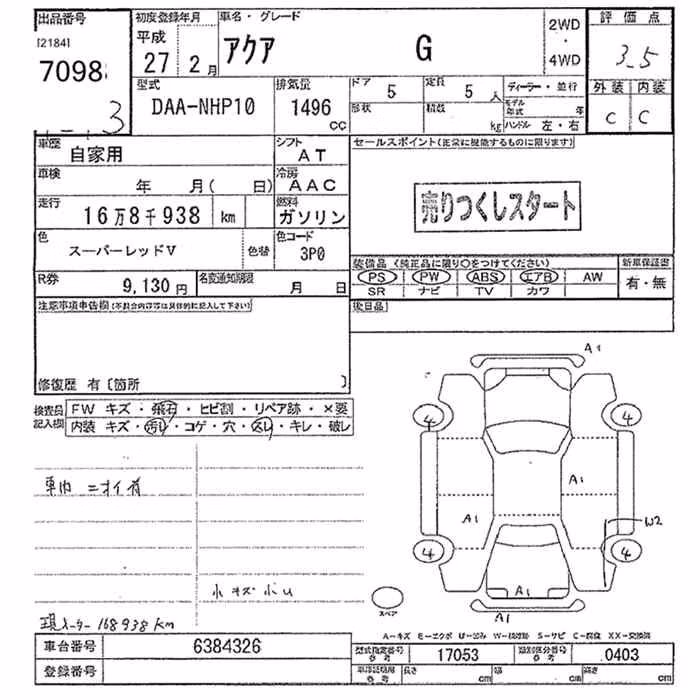 出品番号 初度登録年月 車名・グレード 2WD・4WD 評価点
[2184] 7098 3
平成 27 2月 アクア G 3.5
型式 DAA-NHP10 排気量 1496 CC
ドア 5 定員 5人 ディーラー・並行 外装 内装
形状 積数 kg モデル年式 年 C C
ハンドル 左・右
車歴 自家用 シフト AT セールスポイント(正常に機能するものに限ります)
車検 年 月( 日) 冷房 AAC
走行 16万8千938 km 燃料 ガソリン 売りつくしスタート
色 スーパーレッドV 色替 色コード 3P0
装備品 (純正品に限り○をつけてください) 新車保証書
R券 9,130円 名変通知期限 月 日
PS PW ABS エアB AW 有・無
SR ナビ TV カワ
注意事項申告欄(不具合内容等は具体的に記入して下さい) 後日品
修復歴 有〔箇所 〕
検査員記入欄 FW キズ・飛石・ヒビ割・リペア跡・×要
内装 キズ・汚レ・コゲ・穴・スレ・キレ・破レ
車内 ニオイ有
小キズ小U
現メーター 168938km
A1
4 4
A1
A1
W2
4 4
A1
A1
スペア
A-キズ E-エクボ U-凹み W-補修跡 S-サビ C-腐食 XX-交換済
車台番号 6384326 型式指定番号 参考 17053 類別区分番号 参考 0403
登録番号 長さ cm 幅 cm 高さ cm